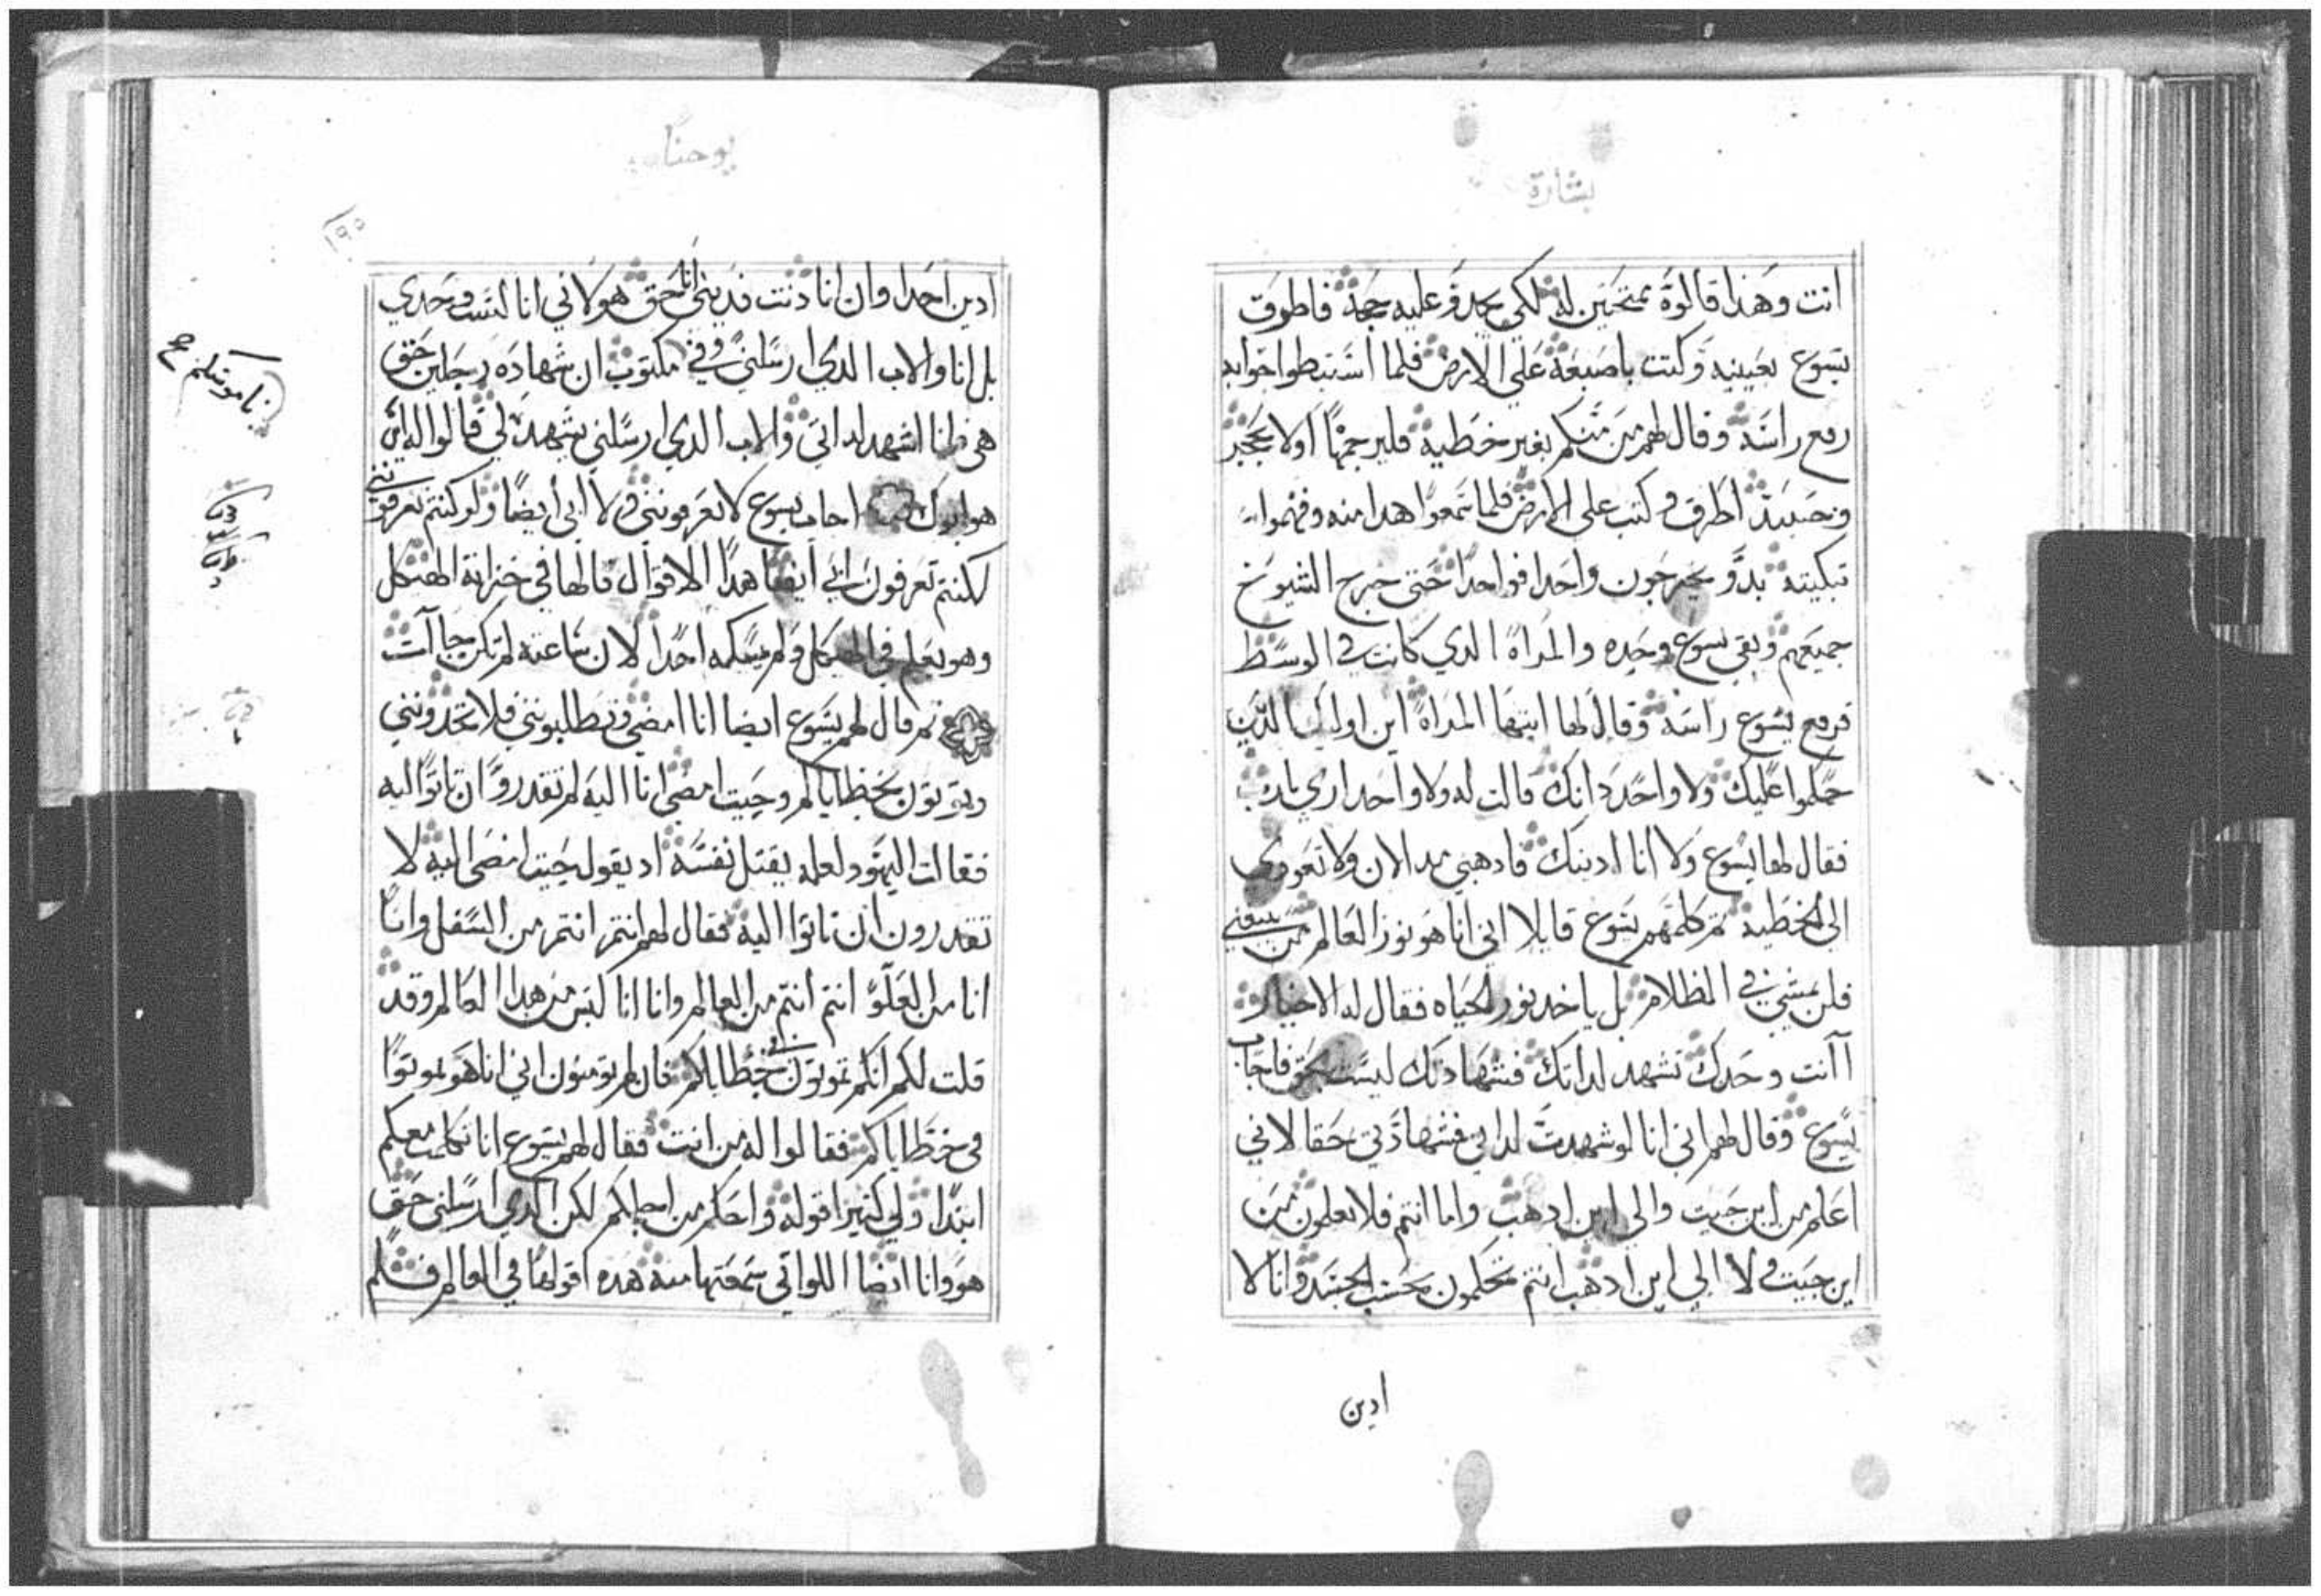 بشارة
انت وهذا قالوة ممتحنين له لكي يجدو عليه حجة فاطرق
يسوع بعينيه وكتت باصبعة علي الارض فلما استبطوا جوابه
رفع راسه وقال لهم من منكم بغير خطية فليرجمها اولا بحجر
وحينيد اطرق وكتب على الارض فلما سمعوا هدا منه وفهموا
تبكيته بدو يخرجون واحدا فواحدا حتى خرج الشيوخ
جميعهم وبقي يسوع وحده والمراة الدي كانت في الوسط
فرفع يسوع راسه وقال لها ايتها المراة اين اوليك الدين
حكموا عليك ولا واحد دانك قالت له ولا واحد اري يارب
فقال لها يسوع ولا انا ادينك فادهبي مند الان ولا تعودي
الى الخطية تم كلمهم يسوع قايلا اني انا هو نور العالم من يتبعني
فلن يمشي في الظلام بل ياخد نور الحياه فقال له الاحبار
اانت وحدك تشهد لداتك فشهادتك ليست بحق فاجاب
يسوع وقال لهم اني انا لو شهدت لداتي فشهادتي حقا لاني
اعلم من اين جيت والي اين ادهب واما انتم فلا تعلمون من
اين جيت ولا الي اين ادهب انتم تحكمون بحسب الجسد وانا لا
ادين
يوحنا
١٩٥
ادين احدا وان انا دنت فدينونتي انا حق هو لاني انا لست وحدي
بل انا والاب الدي ارسلني وفي مكتوب ان شهادة رجلين حق
هي فانا اشهد لداتي والاب الدي ارسلني يشهد لي قالوا له اين
هو ابوك اجاب يسوع لا تعرفونني ولا ابي ايضا ولو كنتم تعرفونني
لكنتم تعرفون ابي ايضا هدا الاقوال قالها في خزانة الهيكل
وهو يعلم في الهيكل ولم يمسكه احدا لان ساعته لم تكن جاات
تم قال لهم يسوع ايضا انا امضي وتطلبونني فلا تجدونني
وتموتون بخطاياكم وحيت امضي انا اليه لم تقدروا ان تاتوا اليه
فقالت اليهود لعله يقتل نفسه اد يقول حيت امضى اليه لا
تقدرون ان تاتوا اليه فقال لهم انتم انتم من السفل وانا
انا من العلو انتم انتم من العالم وانا انا ليس من هدا العالم وقد
قلت لكم انكم تموتون في خطاياكم فان لم تومنون اني انا هو تموتوا
في خطاياكم فقالوا له من انت فقال لهم يسوع انا تكلمت معكم
ابتدا ولي كتيرا قوله واحكم من اجلكم لكن الدي ارسلني حق
هو وانا ايضا اللواتي سمعتها منه هده اقولها في العالم فلم